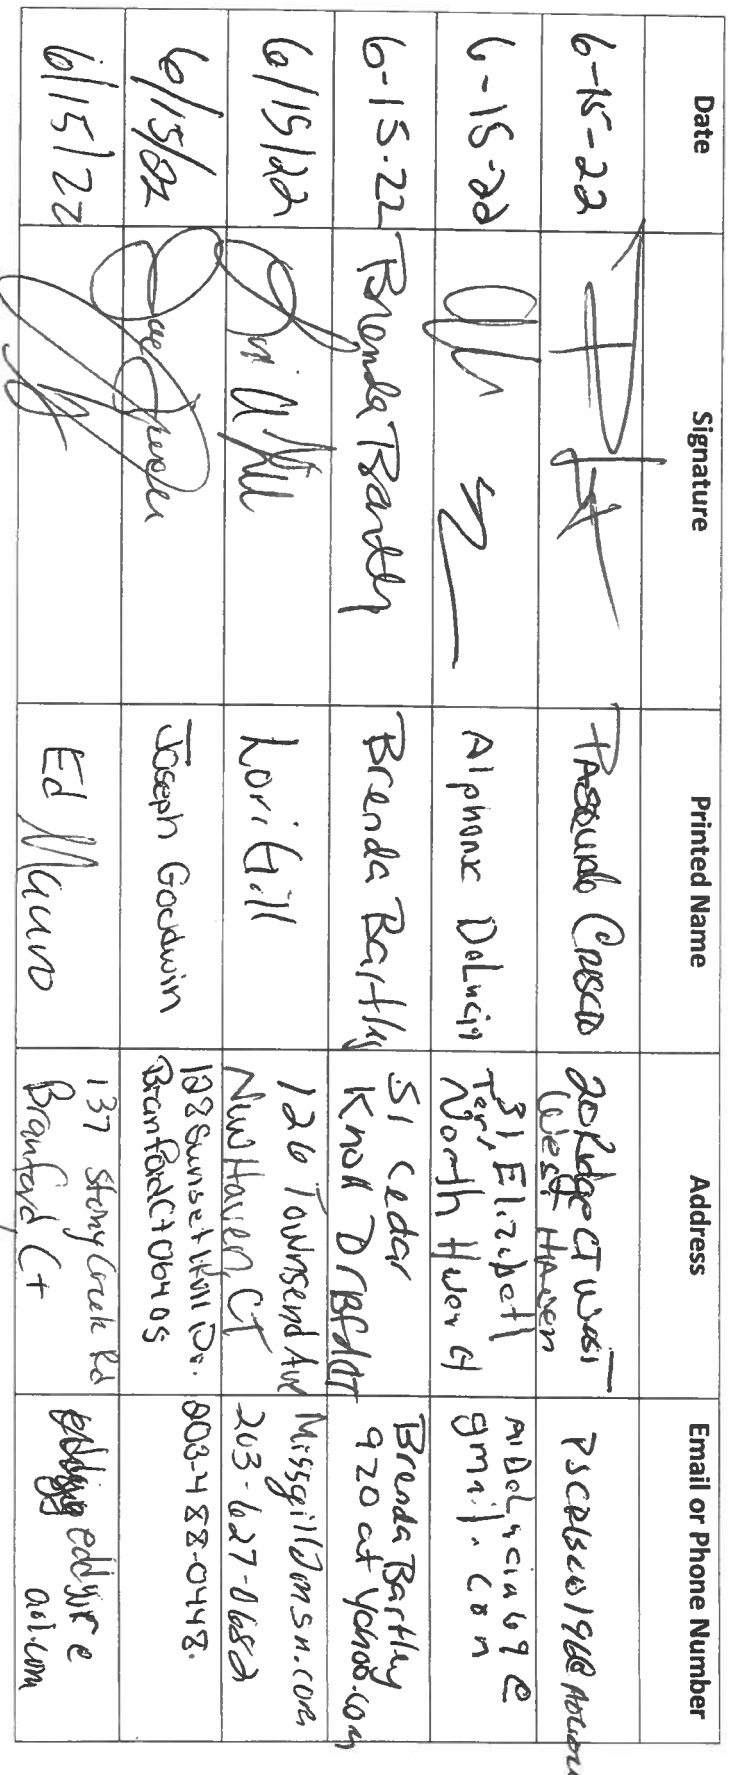 Date Signature Printed Name Address Email or Phone Number
6-15-22 Criscio 20 Ridge CT West
West Haven
6-15-22 Alphonse DeLucia 31 Elizabeth
Ter, North Haven Ct
AlDelucia69@
gmail.com
6-15-22 Brenda Bartley Brenda Bartley 51 Cedar
Knoll Dr BFd CT
Brenda Bartley
920 at yahoo.com
6/15/22 Lori Gill 126 Townsend Ave
New Haven, CT
Missgill@msn.com
203-627-0682
6/15/22 Joseph Goodwin 128 Sunset Hill Dr.
Branford Ct 06405
203-488-0448.
6/15/22 Ed Mauro 137 Stony Creek Rd
Branford Ct
aol.com